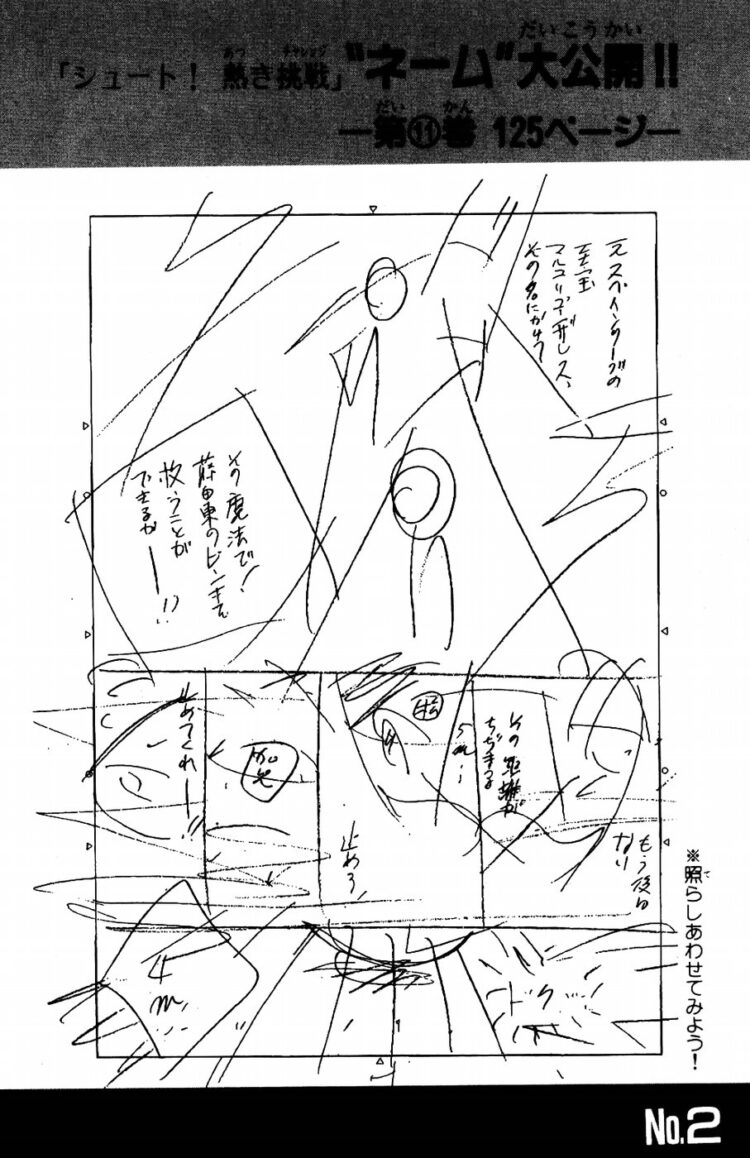 「シュート! 熱き挑戦」"ネーム"大公開!!
だいこうかい
あつ
チャレンジ
―第⑪巻 125ページ―
だい
かん
元スペインリーグの
至宝
マルコ・リデ
その名にかけて
その魔法で!
掛西東のピンチを
救うことが
できるか
―!?
もう後は
ない
その距離が
ちぢまる
5m!
止めろ、
止めてくれ―!!
4m
ドク
※照らしあわせてみよう!
て
No.2